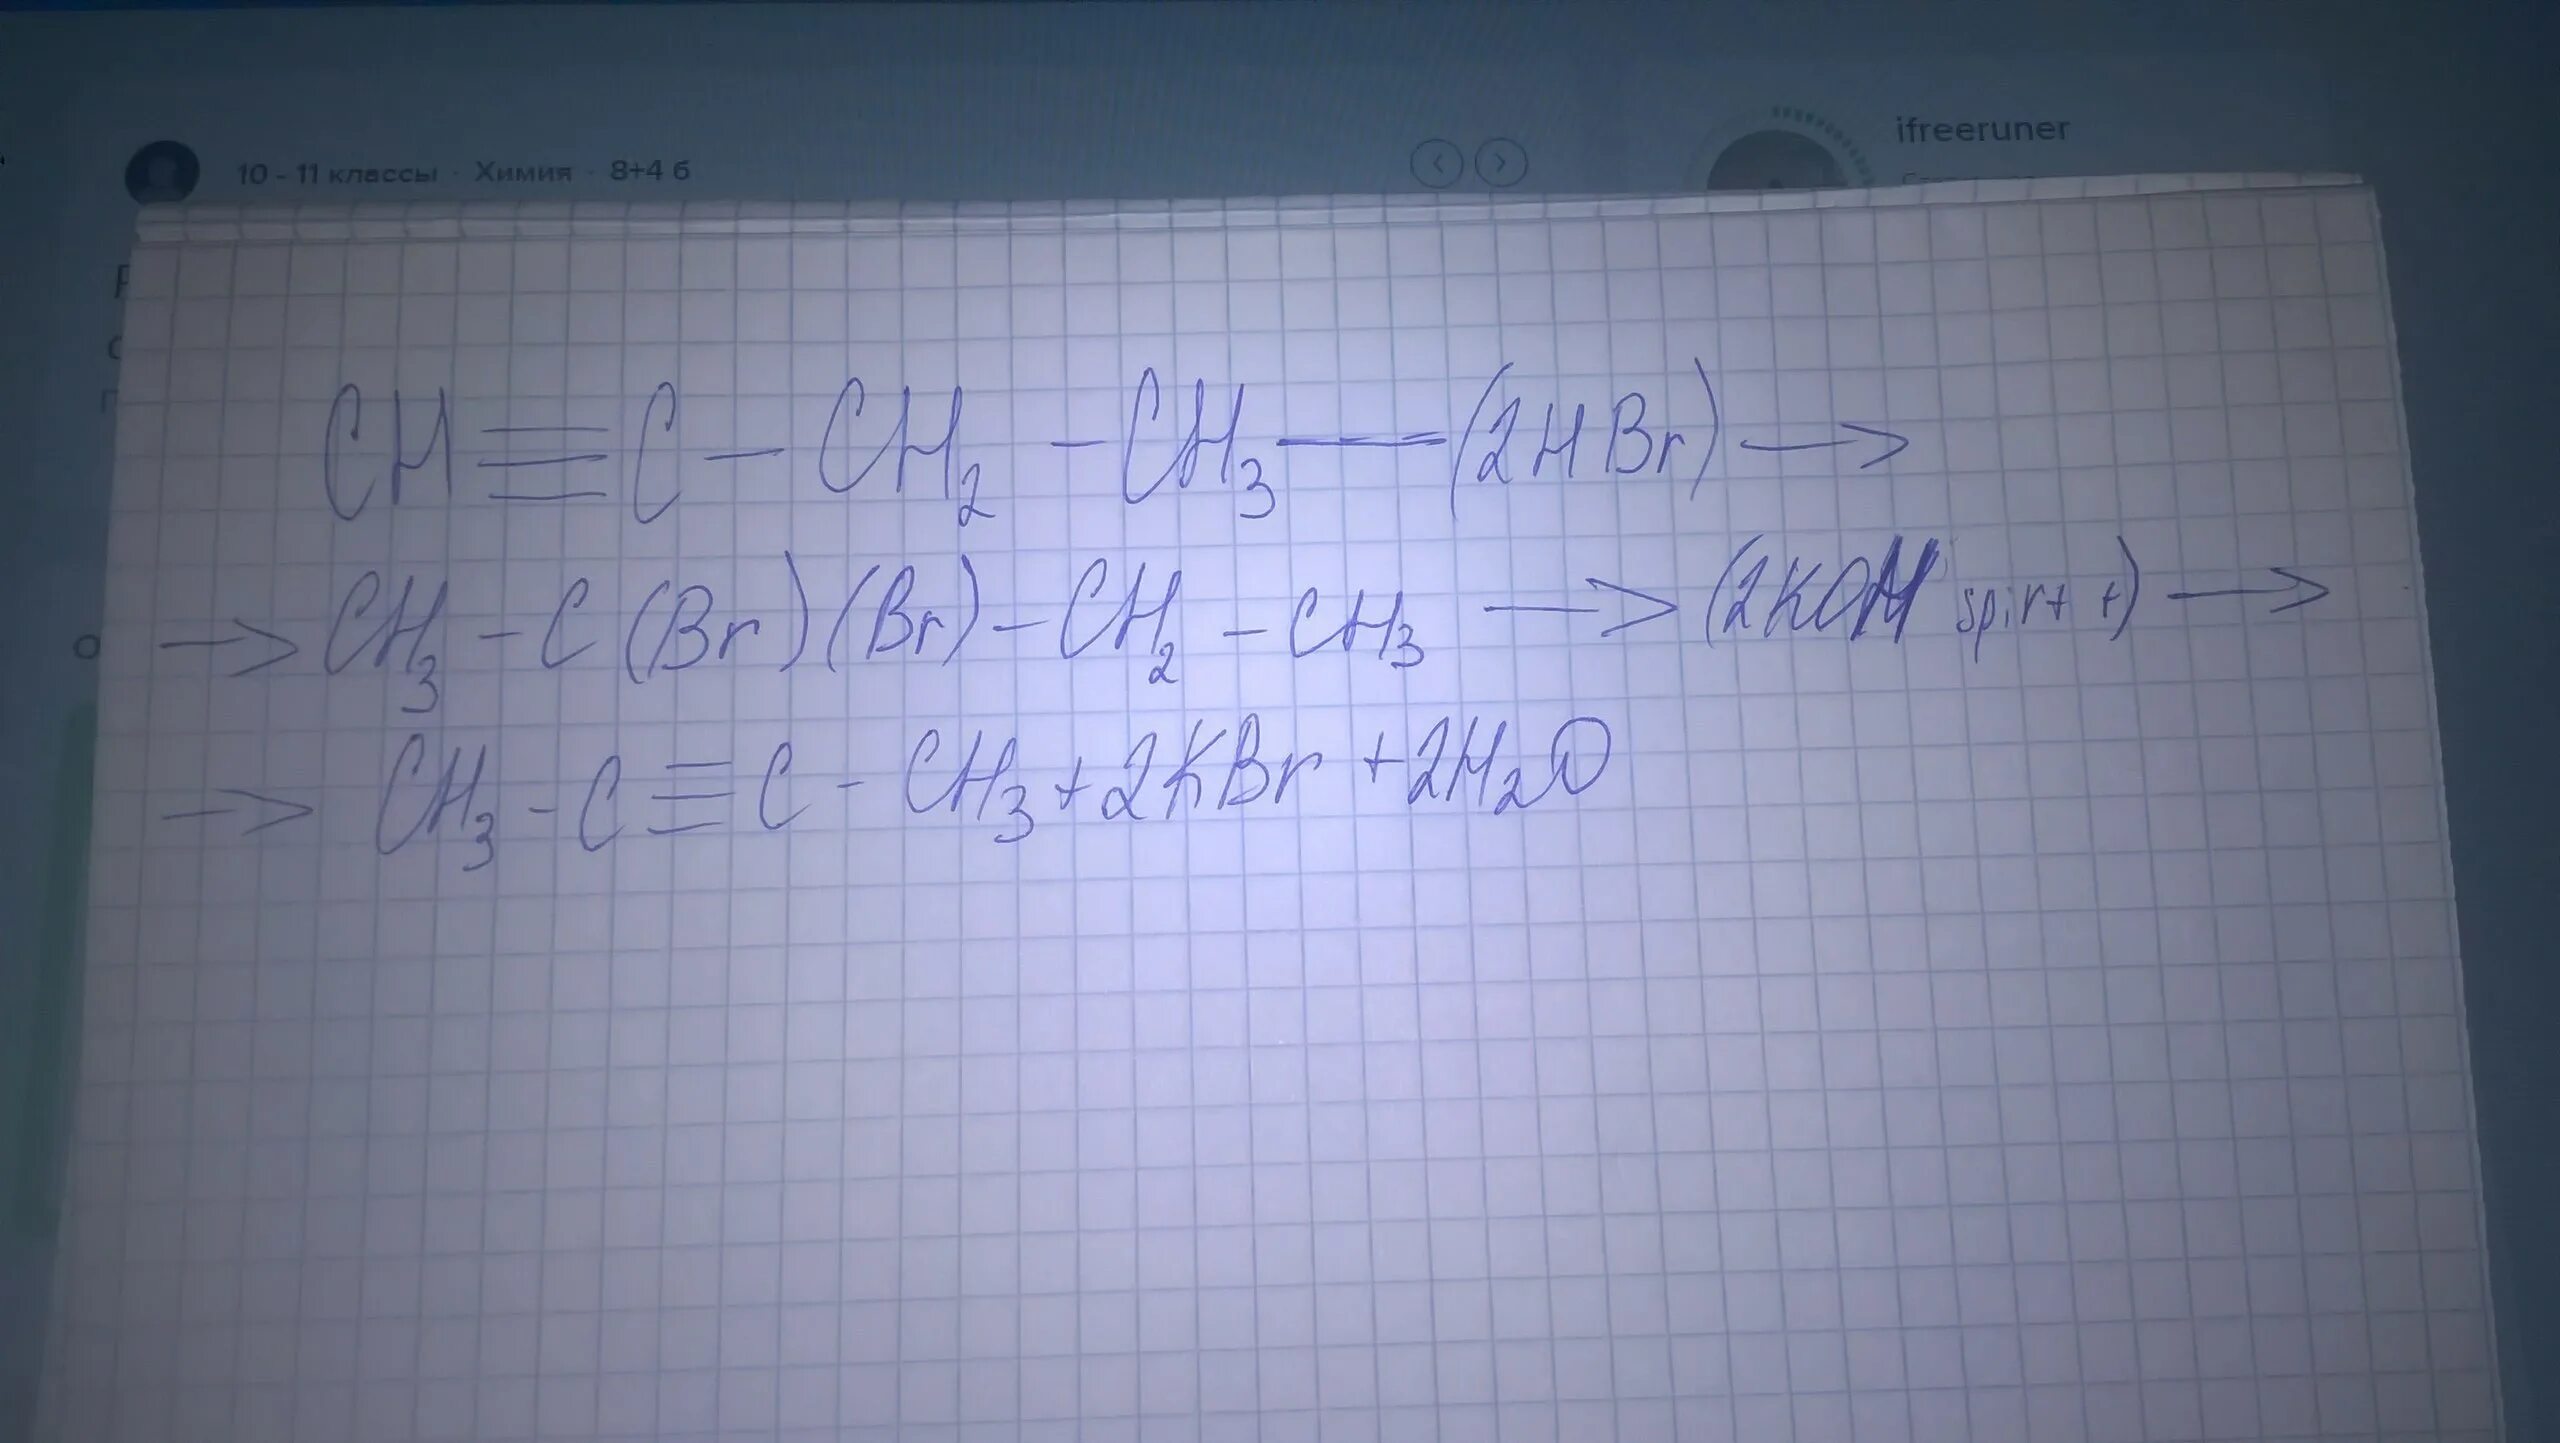 10 - 11 классы · Химия · 8+4 б
ifreeruner
CH≡C-CH₂-CH₃—(2HBr)→
→CH₃-C(Br)(Br)-CH₂-CH₃→(2KOH spirt t)→
→CH₃-C≡C-CH₃+2KBr+2H₂O